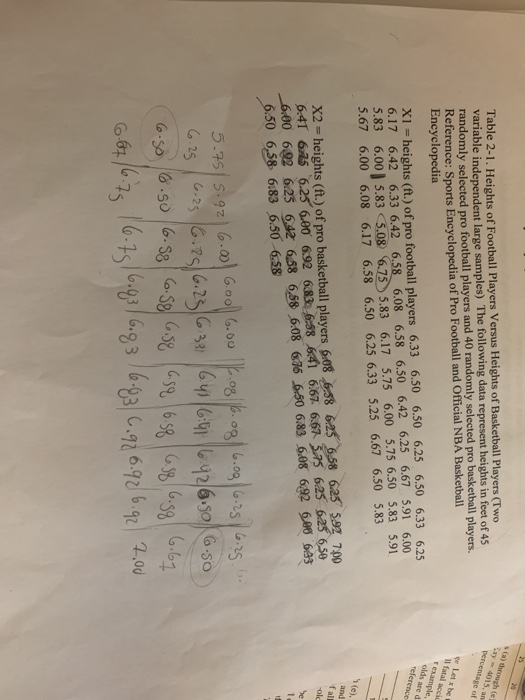 Table 2-1. Heights of Football Players Versus Heights of Basketball Players (Two
variable independent large samples) The following data represent heights in feet of 45
randomly selected pro football players and 40 randomly selected pro basketball players.
Reference: Sports Encyclopedia of Pro Football and Official NBA Basketball
Encyclopedia
X1 = heights (ft.) of pro football players 6.33 6.50 6.50 6.25 6.50 6.33 6.25
6.17 6.42 6.33 6.42 6.58 6.08 6.58 6.50 6.42 6.25 6.67 5.91 6.00
5.83 6.00 5.83 5.08 6.75 5.83 6.17 5.75 6.00 5.75 6.50 5.83 5.91
5.67 6.00 6.08 6.17 6.58 6.50 6.25 6.33 5.25 6.67 6.50 5.83
X2 = heights (ft.) of pro basketball players 6.08 6.58 6.25 6.58 6.25 5.92 7.00
6.41 6.75 6.25 6.00 6.92 6.83 6.58 6.41 6.67 6.67 5.75 6.25 6.25 6.50
6.00 6.92 6.25 6.42 6.58 6.58 6.08 6.75 6.50 6.83 6.08 6.92 6.00 6.33
6.50 6.58 6.83 6.50 6.58
5.75 5.92 6.00 6.00 6.00 6.08 6.08 6.08 6.25 6.25
6.25 6.25 6.25 6.25 6.33 6.41 6.41 6.42 6.50 6.50
6.50 6.50 6.58 6.58 6.58 6.58 6.58 6.58 6.58 6.67
6.67 6.75 6.75 6.83 6.83 6.83 6.92 6.92 6.92 7.00
s (a) through (e
percentage of
ll fatal acci
r example,
olds are d
reference
and